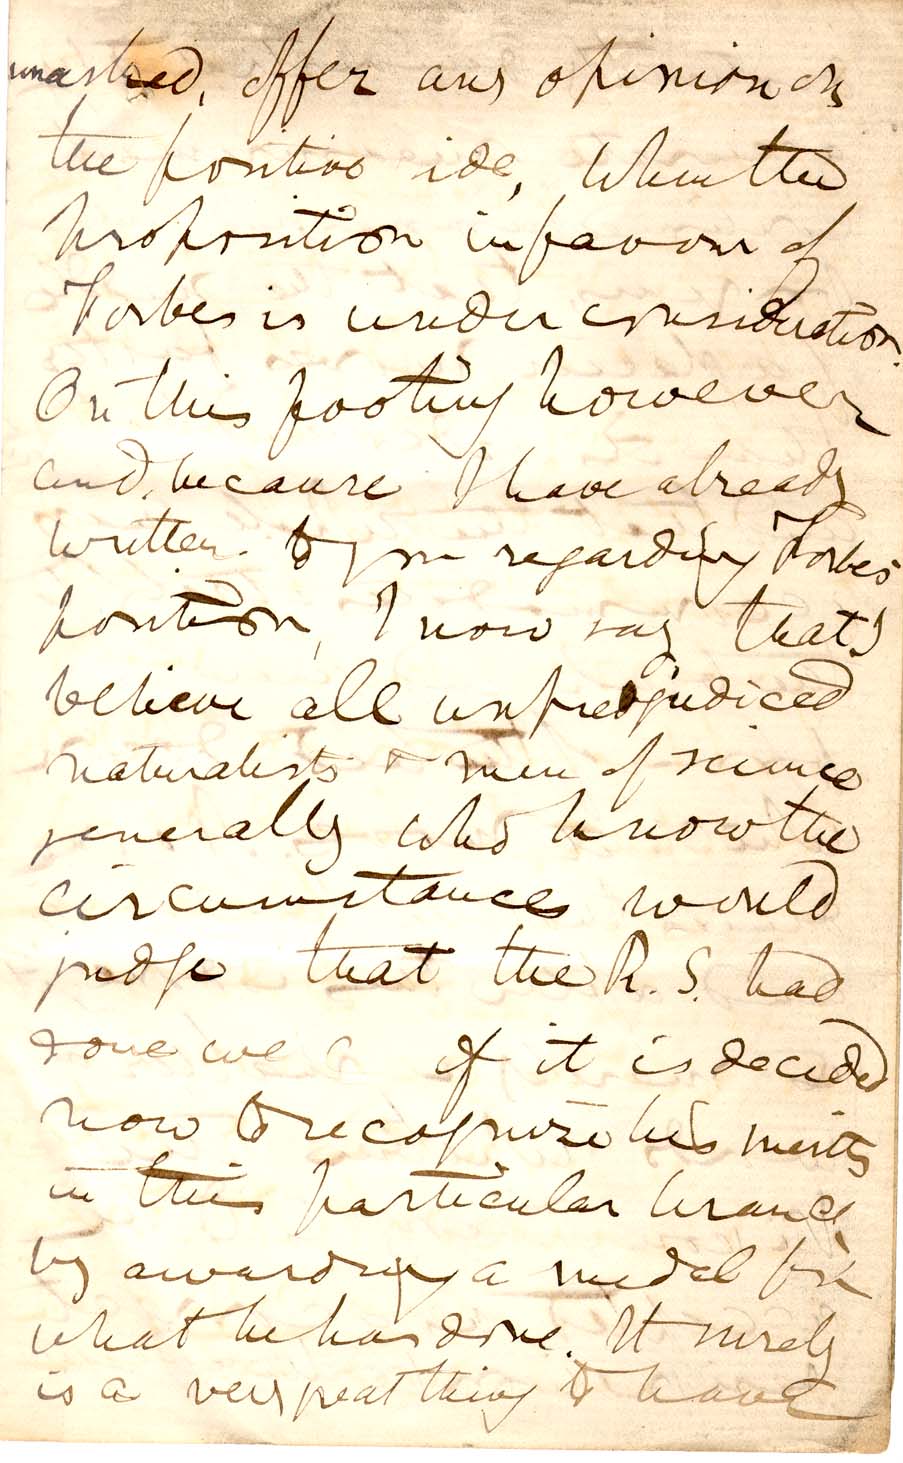 unasked, offer any opinion on
the positive side, when the
proposition in favour of
Forbes is under consideration.
On this footing however
and, because I have already
written to you regarding Forbes
position, I now say that I
believe all unprejudiced
naturalists & men of science
generally who know the
circumstances would
judge that the R.S. had
done well if it is decided
now to recognize his merits
in this particular branch
by awarding a medal for
what he has done. It surely
is a very great thing to have